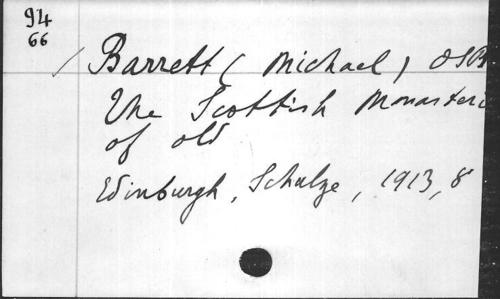 94
66
Barrett (Michael) OSB
The Scottish Monasteri
of old
Edinburgh, Schulze, 1913, 8